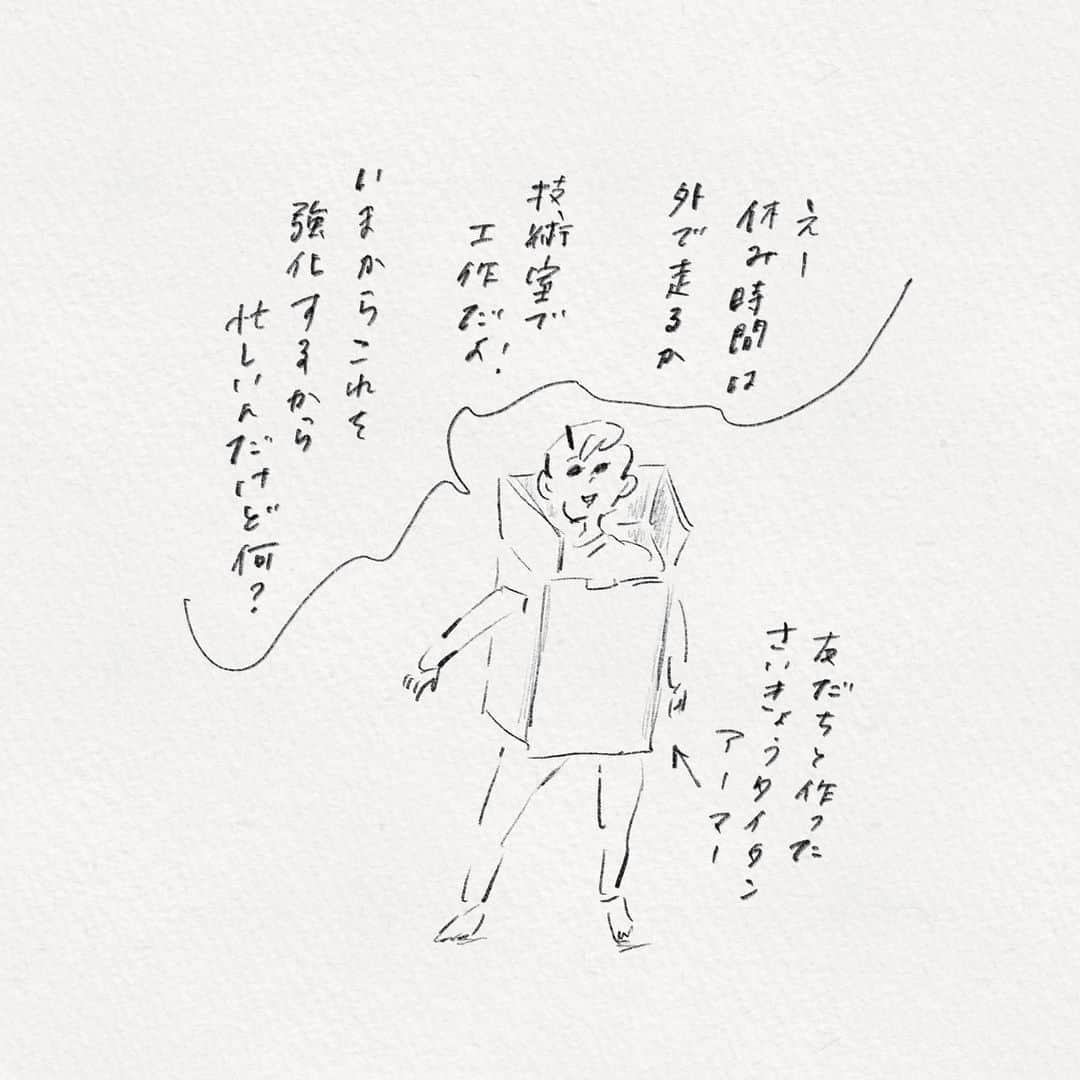 えー
休み時間は
外で走るか
技術室で
工作だよ！
いまからこれを
強化するから
忙しいんだけど何？
友だちと作った
さいきょうタイタン
アーマー